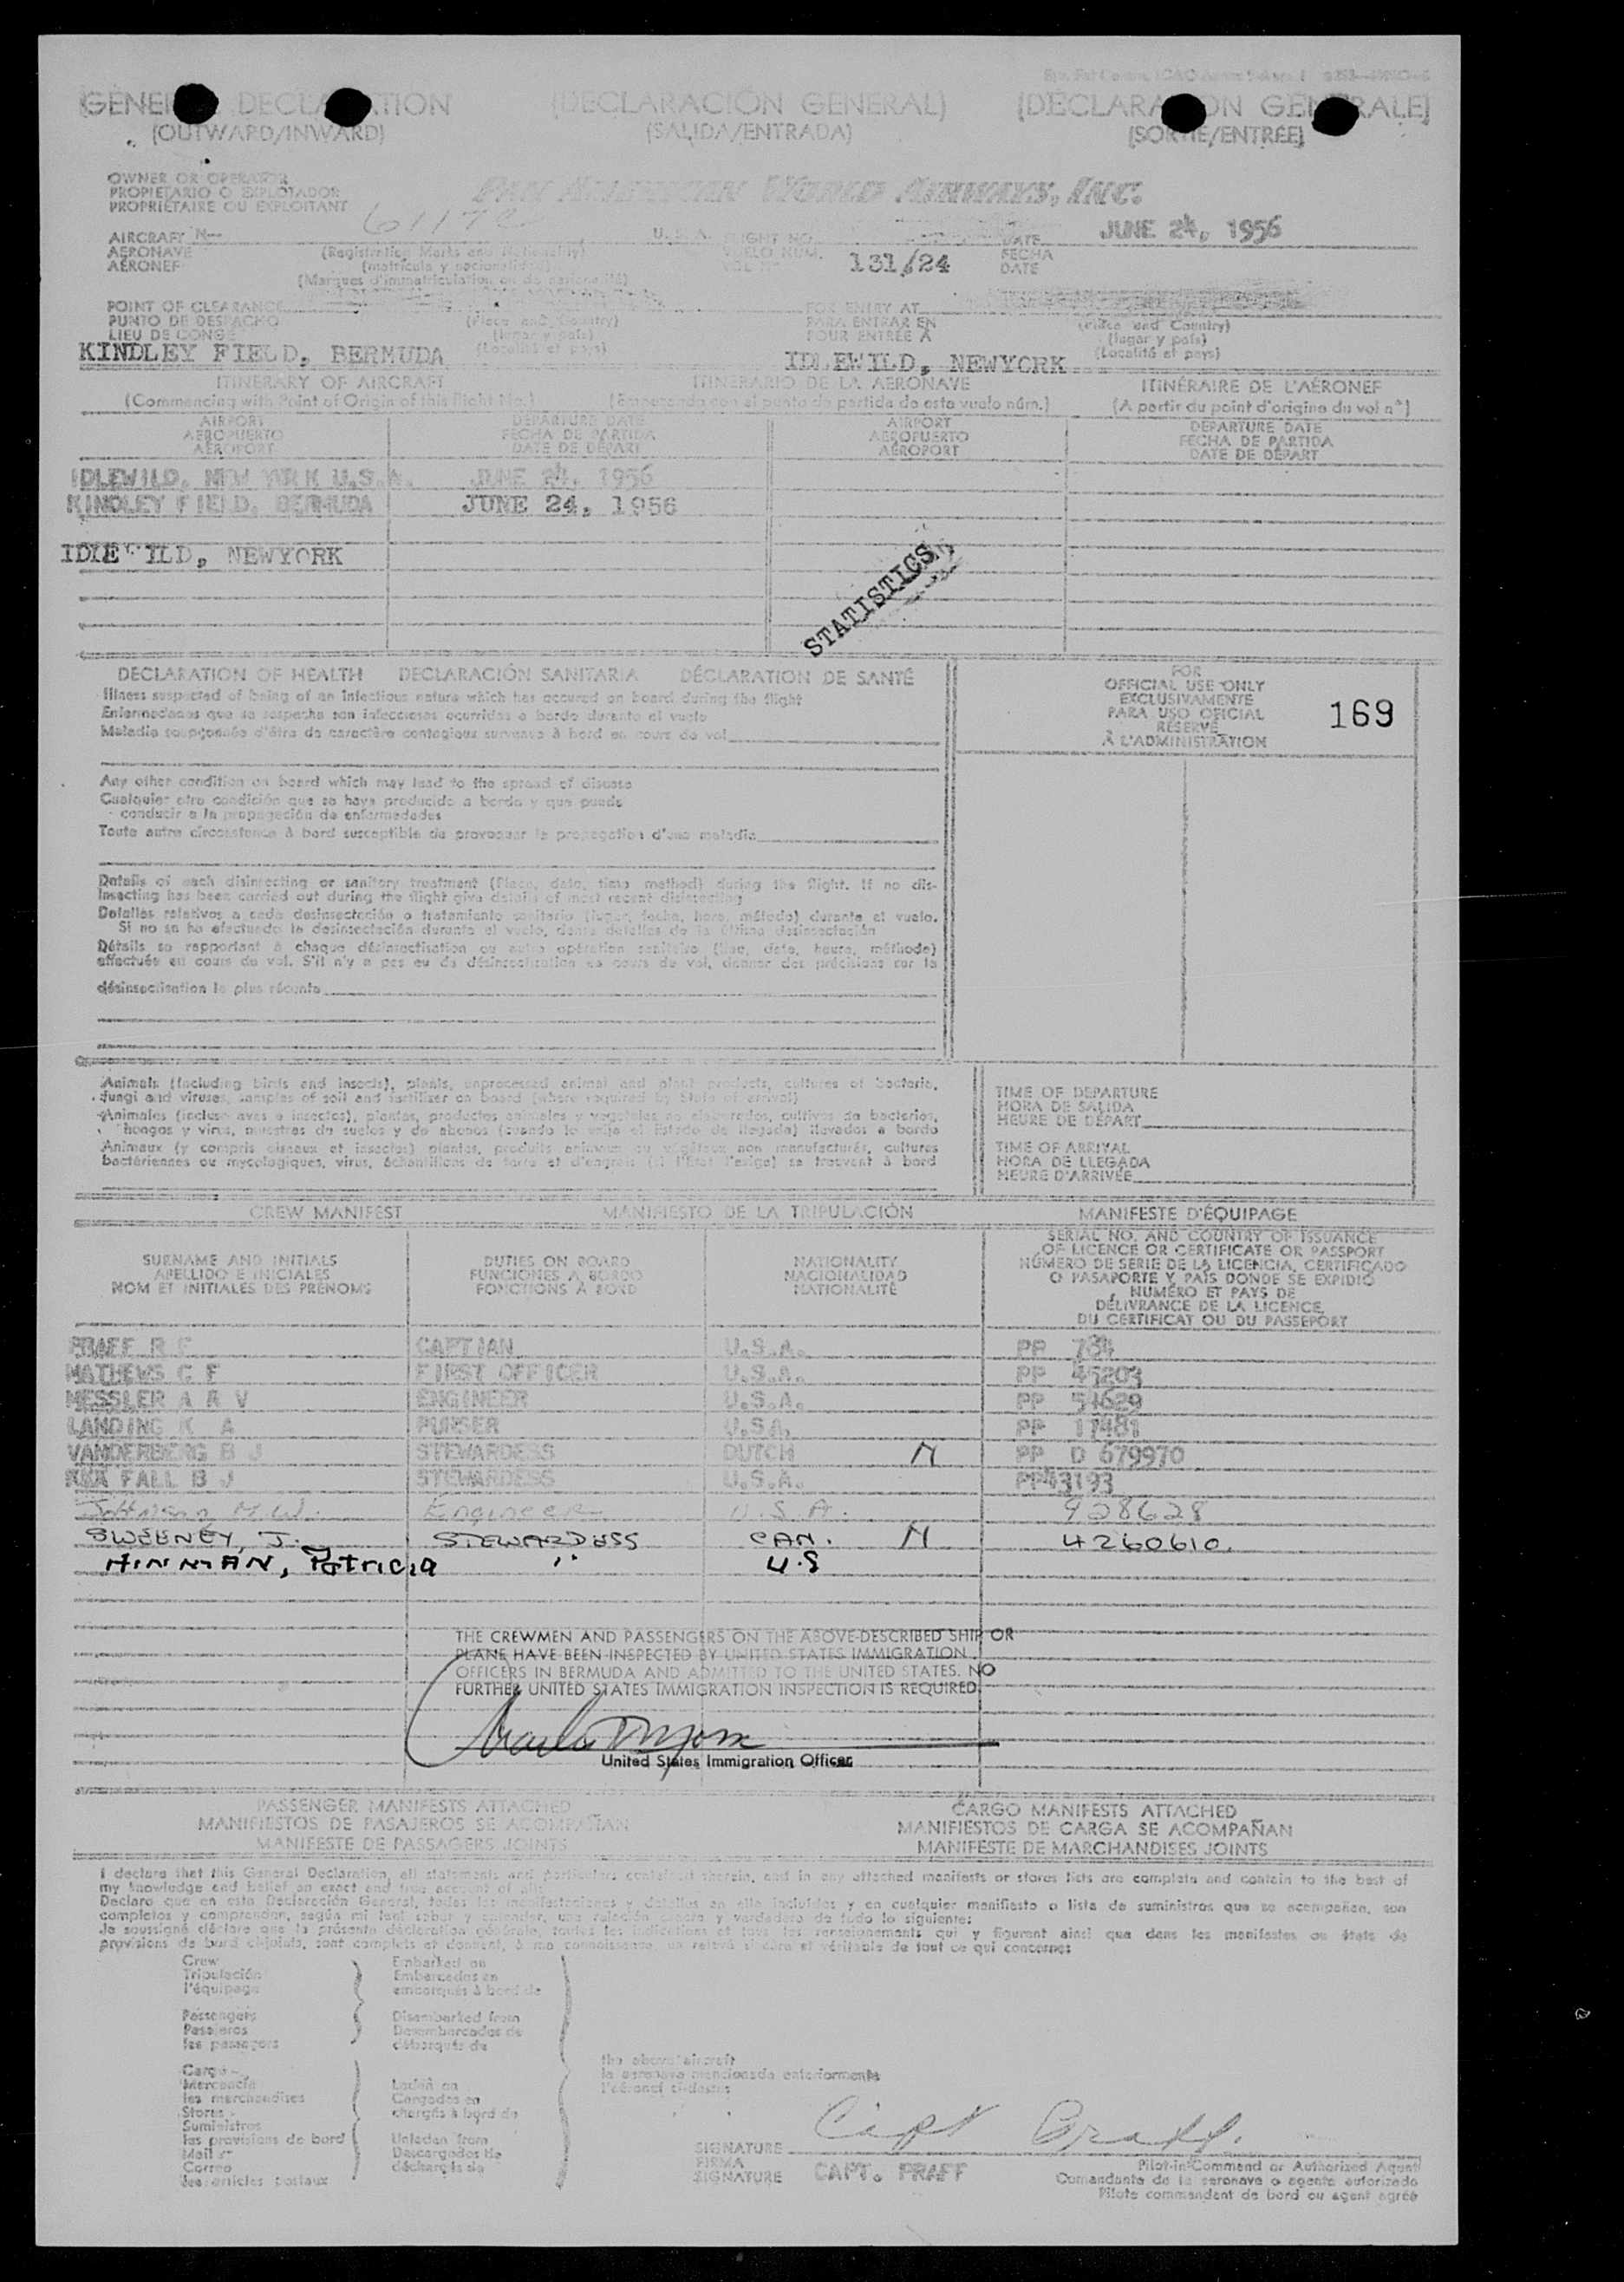 GENE DECLA TION (DECLARACIÓN GENERAL) [DECLARA ON GE RALE]
(OUTWARD/INWARD) (SALIDA/ENTRADA) [SORTIE/ENTRÉE]
OWNER OR OPERATOR
PROPIETARIO O EXPLOTADOR
PROPRIÉTAIRE OU EXPLOITANT
PAN AMERICAN WORLD AIRWAYS, INC.
AIRCRAFT N— 61172 U.S.A. FLIGHT NO. DATE JUNE 24, 1956
AERONAVE (Registration Marks and Nationality) VUELO NUM. 131/24 FECHA
AÉRONEF (matrícula y nacionalidad) VOL Nº DATE
(Marques d'immatriculation ou de nationalité)
POINT OF CLEARANCE FOR ENTRY AT
PUNTO DE DESPACHO (Place and Country) PARA ENTRAR EN (Place and Country)
LIEU DE CONGÉ (lugar y país) POUR ENTRÉE À (lugar y país)
KINDLEY FIELD, BERMUDA (Localité et pays) IDLEWILD, NEWYORK (Localité et pays)
ITINERARY OF AIRCRAFT ITINERARIO DE LA AERONAVE ITINÉRAIRE DE L'AÉRONEF
(Commencing with Point of Origin of this flight No.) (Empezando con el punto de partida de este vuelo núm.) (A partir du point d'origine du vol nº)
AIRPORT DEPARTURE DATE AIRPORT DEPARTURE DATE
AEROPUERTO FECHA DE PARTIDA AEROPUERTO FECHA DE PARTIDA
AÉROPORT DATE DE DÉPART AÉROPORT DATE DE DÉPART
IDLEWILD, NEW YORK U.S.A. JUNE 24, 1956
KINDLEY FIELD, BERMUDA JUNE 24, 1956
IDLEWILD, NEWYORK
STATISTICS
DECLARATION OF HEALTH DECLARACIÓN SANITARIA DÉCLARATION DE SANTÉ
Illness suspected of being of an infectious nature which has occured on board during the flight
Enfermedades que se sospecha son infecciosas ocurridas a bordo durante el vuelo
Maladie soupçonnée d'être de caractère contagieux survenue à bord en cours de vol
FOR
OFFICIAL USE ONLY
EXCLUSIVAMENTE
PARA USO OFICIAL
RÉSERVÉ
À L'ADMINISTRATION
169
Any other condition on board which may lead to the spread of disease
Cualquier otra condición que se haya producido a bordo y que pueda
conducir a la propagación de enfermedades
Toute autre circonstance à bord susceptible de provoquer la propagation d'une maladie
Details of each disinsecting or sanitary treatment (Place, date, time method) during the flight. If no dis-
insecting has been carried out during the flight give details of most recent disinsecting
Detalles relativos a cada desinsectación o tratamiento sanitario (lugar, fecha, hora, método) durante el vuelo.
Si no se ha efectuado la desinsectación durante el vuelo, dense detalles de la última desinsectación
Détails se rapportant à chaque désinsectisation ou autre opération sanitaire (lieu, date, heure, méthode)
effectuée en cours de vol. S'il n'y a pas eu de désinsectisation en cours de vol, donner des précisions sur la
désinsectisation la plus récente
Animals (including birds and insects), plants, unprocessed animal and plant products, cultures of bacteria,
fungi and viruses, samples of soil and fertilizer on board (where required by State of arrival)
Animales (incluso aves e insectos), plantas, productos animales y vegetales no elaborados, cultivos de bacterias,
hongos y virus, muestras de suelos y de abonos (cuando lo exija el Estado de llegada) llevados a bordo
Animaux (y compris oiseaux et insectes) plantes, produits animaux ou végétaux non manufacturés, cultures
bactériennes ou mycologiques, virus, échantillons de terre et d'engrais (si l'État l'exige) se trouvant à bord
TIME OF DEPARTURE
HORA DE SALIDA
HEURE DE DÉPART
TIME OF ARRIVAL
HORA DE LLEGADA
HEURE D'ARRIVÉE
CREW MANIFEST MANIFIESTO DE LA TRIPULACIÓN MANIFESTE D'ÉQUIPAGE
SURNAME AND INITIALS DUTIES ON BOARD NATIONALITY
APELLIDO E INICIALES FUNCIONES A BORDO NACIONALIDAD
NOM ET INITIALES DES PRÉNOMS FONCTIONS À BORD NATIONALITÉ
SERIAL NO. AND COUNTRY OF ISSUANCE
OF LICENCE OR CERTIFICATE OR PASSPORT
NÚMERO DE SERIE DE LA LICENCIA, CERTIFICADO
O PASAPORTE Y PAÍS DONDE SE EXPIDIÓ
NUMÉRO ET PAYS DE
DÉLIVRANCE DE LA LICENCE,
DU CERTIFICAT OU DU PASSEPORT
PRAFF R F CAPTIAN U.S.A. PP 734
MATHEWS C F FIRST OFFICER U.S.A. PP 45203
MESSLER A A V ENGINEER U.S.A. PP 54629
LANDING K A PURSER U.S.A. PP 11481
VANDERBERG B J STEWARDESS DUTCH N PP D 679970
XXX FALL B J STEWARDESS U.S.A. PP43193
Johnson M.W. Engineer U.S.A. 928628
SWEENEY, J. STEWARDESS CAN. N 4260610.
HINMAN, Patricia " U.S
THE CREWMEN AND PASSENGERS ON THE ABOVE-DESCRIBED SHIP OR
PLANE HAVE BEEN INSPECTED BY UNITED STATES IMMIGRATION
OFFICERS IN BERMUDA AND ADMITTED TO THE UNITED STATES. NO
FURTHER UNITED STATES IMMIGRATION INSPECTION IS REQUIRED
United States Immigration Officer
PASSENGER MANIFESTS ATTACHED CARGO MANIFESTS ATTACHED
MANIFIESTOS DE PASAJEROS SE ACOMPAÑAN MANIFIESTOS DE CARGA SE ACOMPAÑAN
MANIFESTE DE PASSAGERS JOINTS MANIFESTE DE MARCHANDISES JOINTS
I declare that this General Declaration, all statements and particulars contained therein, and in any attached manifests or stores lists are complete and contain to the best of
my knowledge and belief an exact and true account of all:
Declaro que en esta Declaración General, todas las manifestaciones y detalles en ella incluidos y en cualquier manifiesto o lista de suministros que se acompañan, son
completos y comprenden, según mi leal saber y entender, una relación exacta y verdadera de todo lo siguiente:
Je soussigné déclare que la présente déclaration générale, toutes les indications et tous les renseignements qui y figurent ainsi que dans les manifestes ou états de
provisions de bord ci-joints, sont complets et donnent, à ma connaissance, un relevé sincère et véritable de tout ce qui concerne:
Crew Embarked on
Tripulación Embarcados en
l'équipage embarqués à bord de
Passengers Disembarked from
Pasajeros Desembarcados de
les passagers débarqués de
the above aircraft
la aeronave mencionada anteriormente
l'aéronef ci-dessus
Cargo
Mercancía Laden on
les marchandises Cargados en
Stores chargés à bord de
Suministros
les provisions de bord Unladen from
Mail Descargados de
Correo déchargés de
les articles postaux
SIGNATURE Capt Praff.
FIRMA
SIGNATURE CAPT. PRAFF
Pilot-in-Command or Authorized Agent
Comandante de la aeronave o agente autorizado
Pilote commandant de bord ou agent agréé